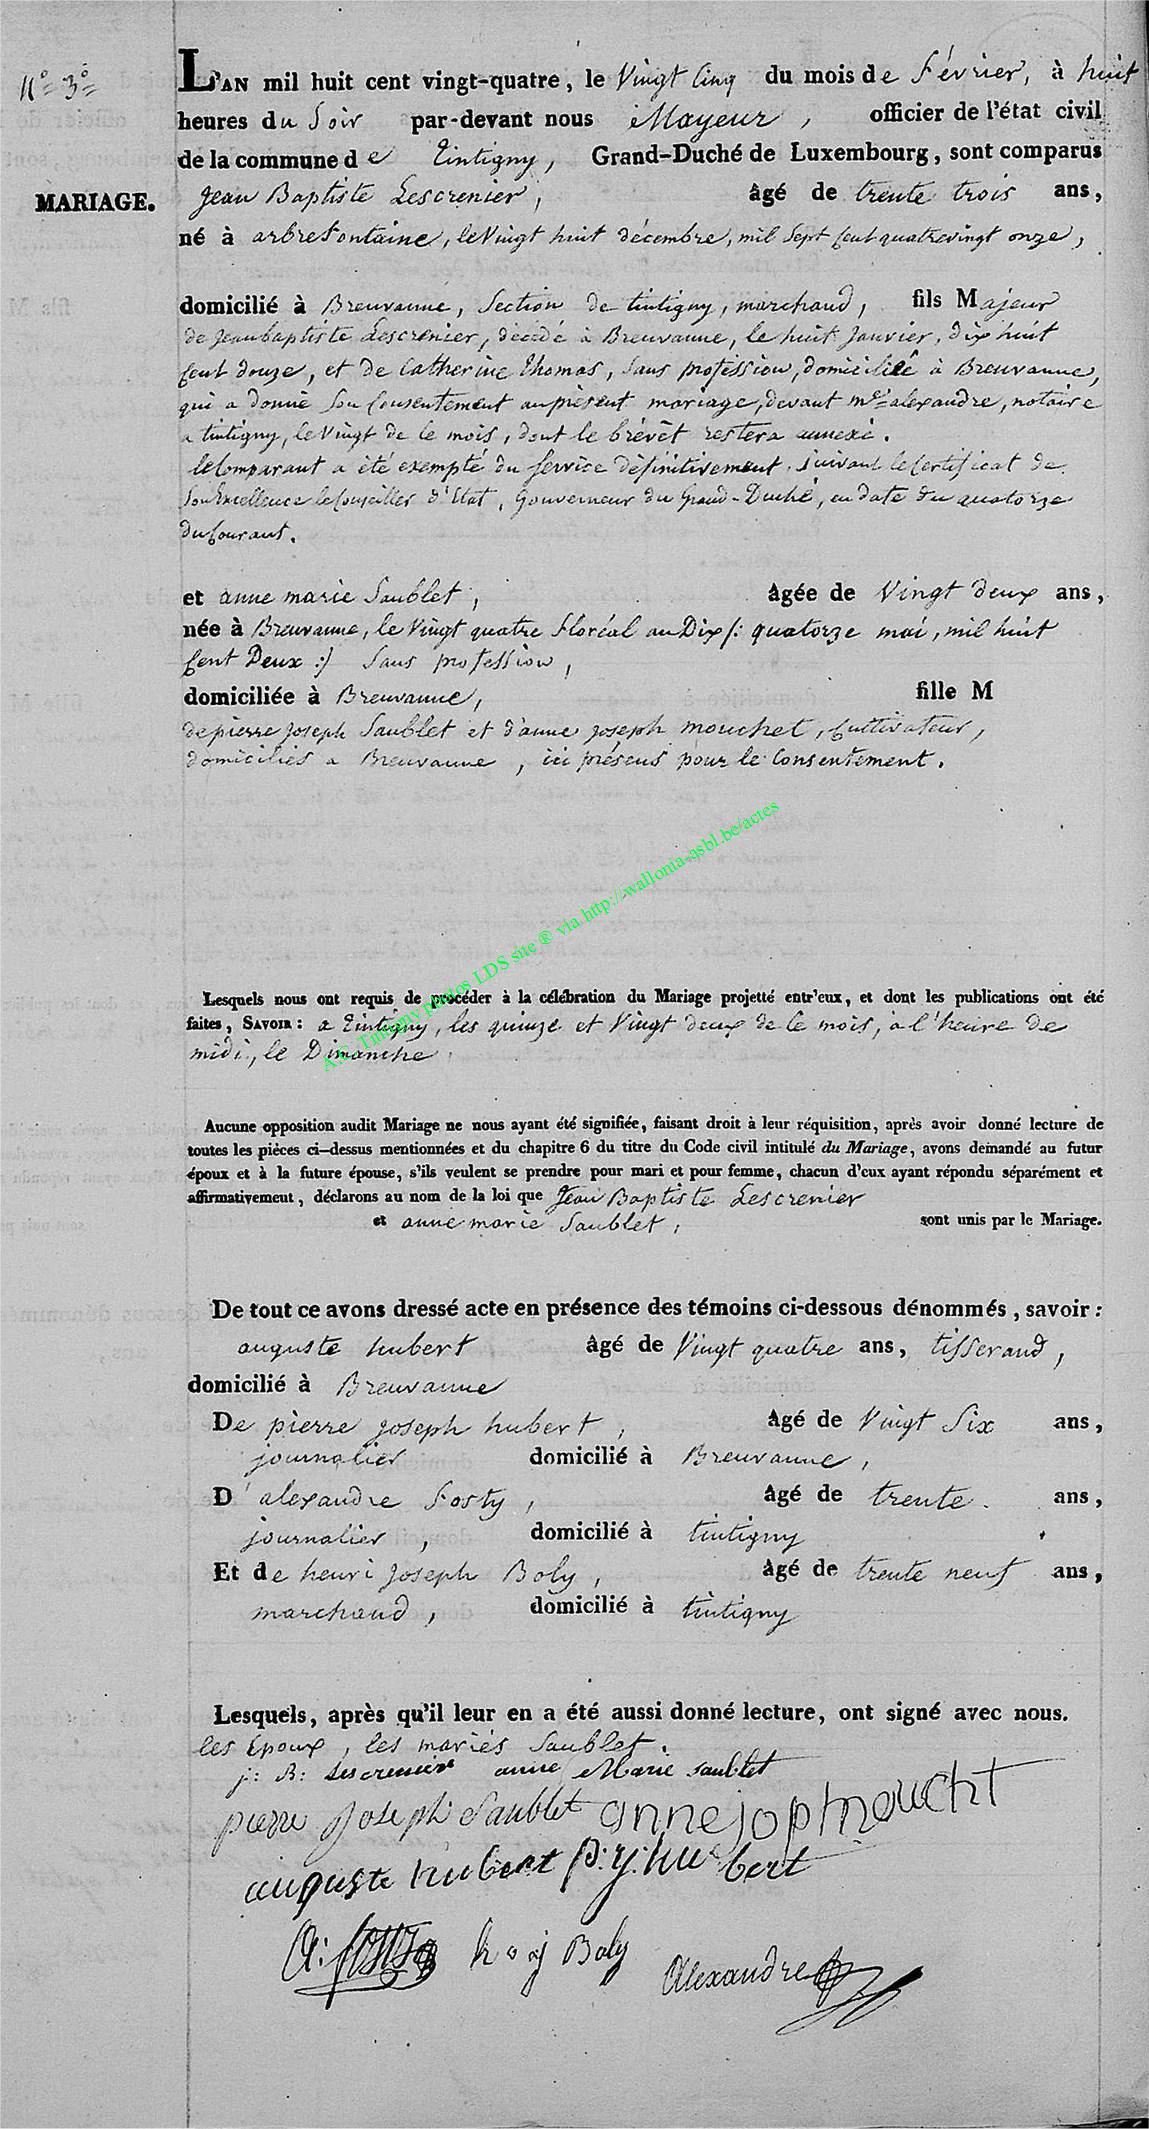 N° 3°
MARIAGE.
L'AN mil huit cent vingt-quatre, le Vingt Cinq du mois de Février, à huit
heures du Soir par-devant nous Mayeur, officier de l'état civil
de la commune de Tintigny, Grand-Duché de Luxembourg, sont comparus
Jean Baptiste Lescrenier, âgé de trente trois ans,
né à arbrefontaine, le Vingt huit décembre, mil Sept Cent quatrevingt onze,
domicilié à Breuvanne, Section de tintigny, marchand, fils Majeur
de Jean baptiste Lescrenier, décédé à Breuvanne, le huit Janvier, dix huit
Cent douze, et de Catherine Thomas, Sans profession, domiciliéé à Breuvanne,
qui a donné Son Consentement au présent mariage, devant me alexandre, notaire
a tintigny, le Vingt de ce mois, dont le brévèt restera annexé.
le Comparant a été exempté du Service définitivement, Suivant le Certificat de
Son Excellence le Conseiller d'Etat, Gouverneur du Grand-Duché, en date du quatorze
du Courant.
et anne marie Saublet, âgée de Vingt deux ans,
née à Breuvanne, le Vingt quatre Floréal an Dix /: quatorze mai, mil huit
Cent Deux :/ Sans profession,
domiciliée à Breuvanne, fille M
de pierre Joseph Saublet et d'anne joseph mouchet, Cultivateur,
domiciliés a Breuvanne, ici présens pour le Consentement.
A.C. Tintigny photos LDS site ® via http://wallonia-asbl.be/actes
Lesquels nous ont requis de procéder à la célébration du Mariage projetté entr'eux, et dont les publications ont été
faites, SAVOIR : a Tintigny, les quinze et Vingt deux de ce mois, à l'heure de
midi, le Dimanche.
Aucune opposition audit Mariage ne nous ayant été signifiée, faisant droit à leur réquisition, après avoir donné lecture de
toutes les pièces ci-dessus mentionnées et du chapitre 6 du titre du Code civil intitulé du Mariage, avons demandé au futur
époux et à la future épouse, s'ils veulent se prendre pour mari et pour femme, chacun d'eux ayant répondu séparément et
affirmativement, déclarons au nom de la loi que Jean Baptiste Lescrenier
et anne marie Saublet, sont unis par le Mariage.
De tout ce avons dressé acte en présence des témoins ci-dessous dénommés, savoir :
auguste hubert âgé de Vingt quatre ans, tisserand,
domicilié à Breuvanne
De pierre joseph hubert, âgé de Vingt Six ans,
journalier domicilié à Breuvanne,
D'alexandre Fosty, âgé de trente ans,
journalier, domicilié à tintigny
Et de henri joseph Boly, âgé de trente neuf ans,
marchand, domicilié à tintigny
Lesquels, après qu'il leur en a été aussi donné lecture, ont signé avec nous.
les Epoux, les mariés Saublet.
j: B: Lescrenier anne Marie saublet
pierre Joseph Saublet anne jop moucht
auguste hubert p: j: hubert
A: fosty h j Boly Alexandre